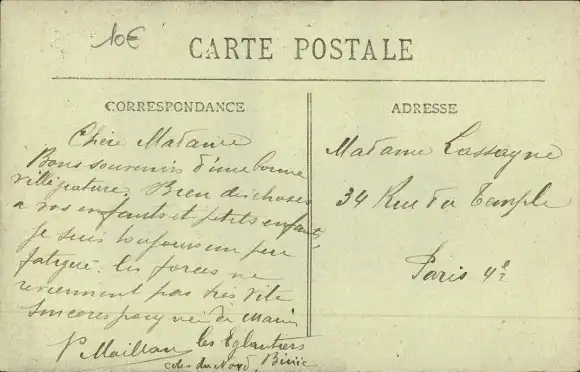 10€
CARTE POSTALE
CORRESPONDANCE
ADRESSE
Chère Madame
Bons souvenirs d'une bonne
villégiature. Bien des choses
a vos enfants et petits enfants,
je suis toujours un peu
fatigué. les forces ne
reviennent pas très vite
Sincères poignée de Main
les Eglantiers
Côtes du Nord, Binic
Madame Lassagne
34 Rue du Temple
Paris 4e